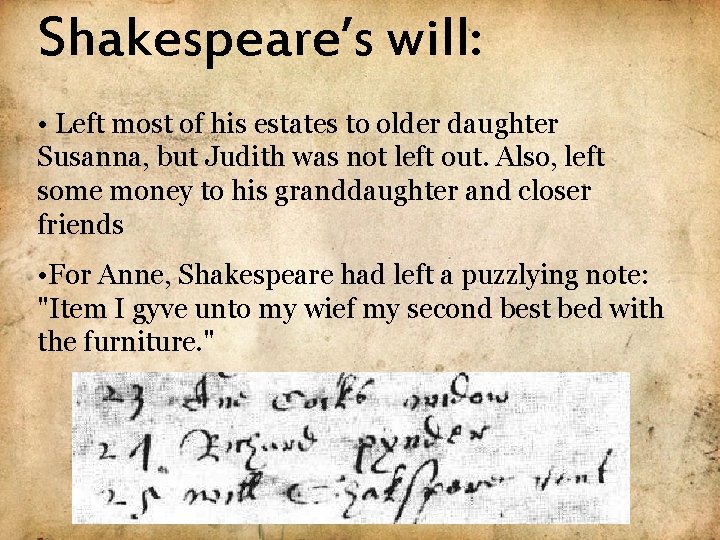 Shakespeare’s will:
• Left most of his estates to older daughter
Susanna, but Judith was not left out. Also, left
some money to his granddaughter and closer
friends
•For Anne, Shakespeare had left a puzzlying note:
"Item I gyve unto my wief my second best bed with
the furniture."
23
24 Richard pynder
25 will Shakspere gent